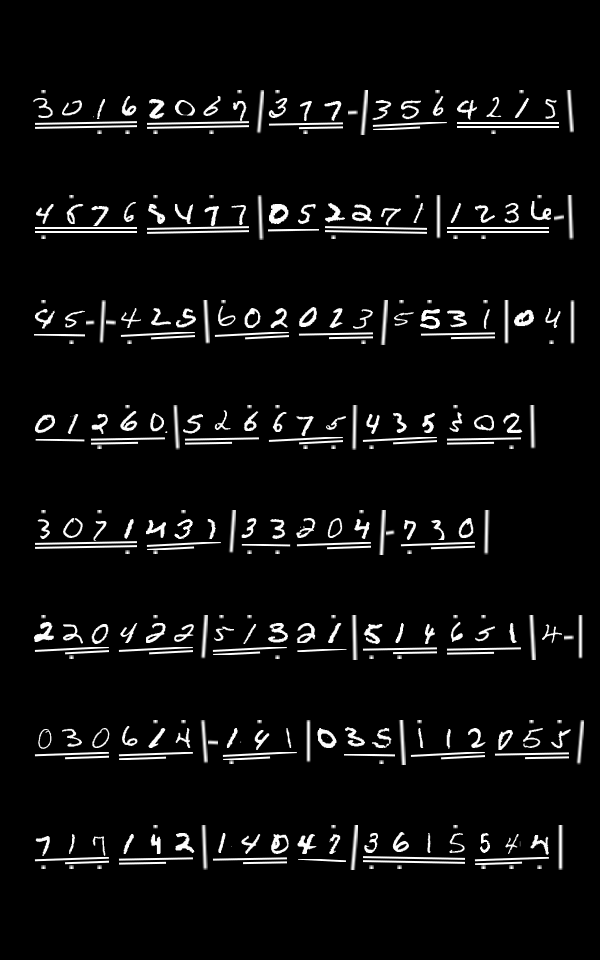 3 0 1 6 2 0 6 7 | 3 7 7 - | 3 5 6 4 2 1 5 |
4 8 7 6 8 4 7 7 | 0 5 2 2 7 1 | 1 2 3 6 - |
4 5 - | - 4 2 5 | 6 0 2 0 2 3 | 5 5 3 1 | 0 4 |
0 1 2 6 0 | 5 2 6 6 7 5 | 4 3 5 3 0 2 |
3 0 7 1 4 3 1 | 3 3 2 0 4 | - 7 3 0 |
2 2 0 4 2 2 | 5 1 3 2 1 | 5 1 4 6 5 1 | 4 - |
0 3 0 6 1 4 | - 1 4 1 | 0 3 5 | 1 1 2 0 5 5 |
7 1 7 1 4 2 | 1 4 0 4 7 | 3 6 1 5 5 4 4 |